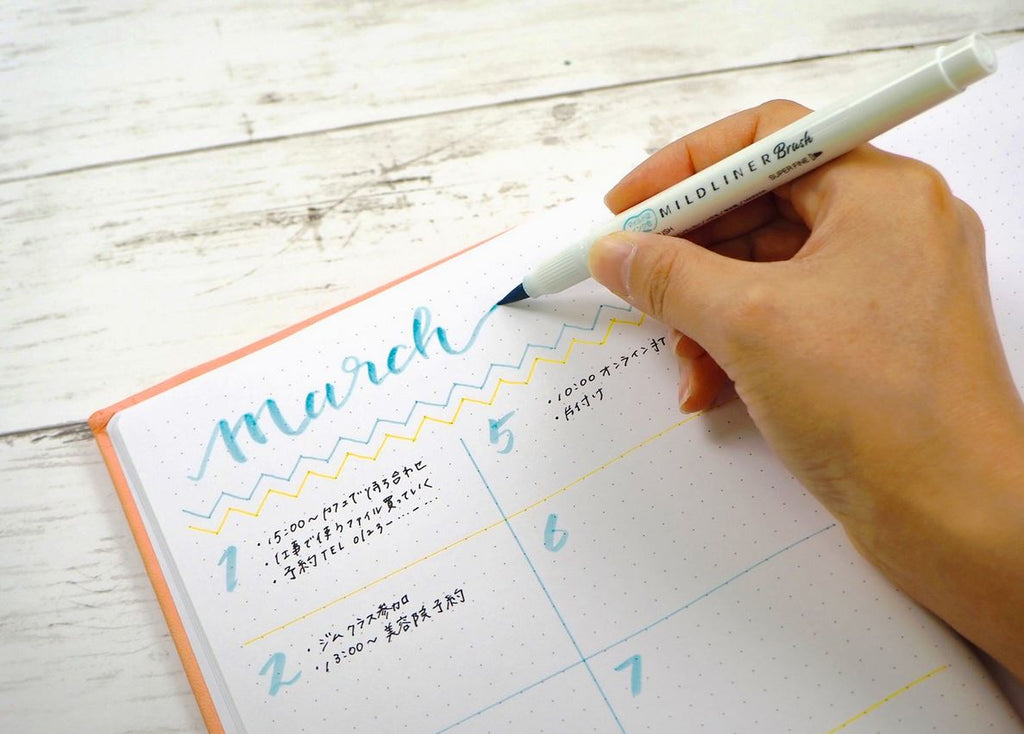 MILDLINER Brush
SUPER FINE
march
1
・15:00〜カフェで待ち合わせ
・仕事で使うファイル買っていく
・予約TEL 0123-...-...
5
・10:00 オンラインMT
・片付け
2
・ジムクラス参加
・13:00〜美容院予約
6
7